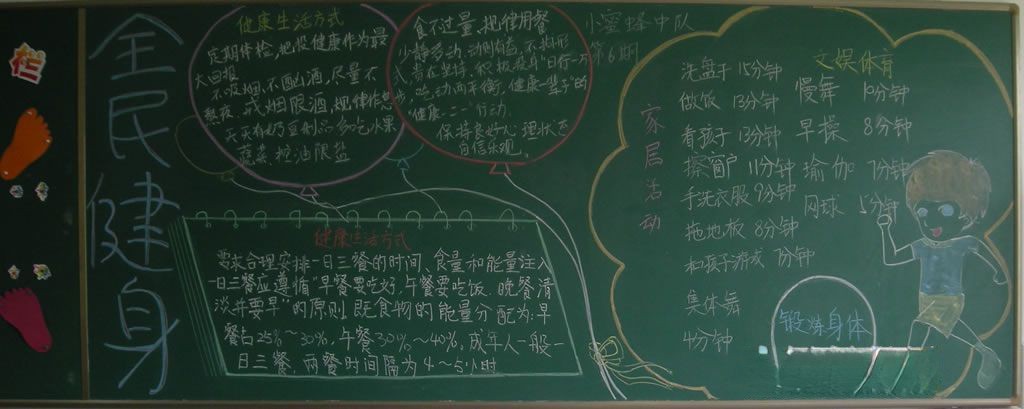 栏
全民健身
健康生活方式
定期体检,把投健康作为最
大回报
不吸烟、不酗酒,尽量不
熬夜,戒烟限酒,规律作息
天天有奶豆制品多吃水果
蔬菜控油限盐
食不过量,规律用餐
少静多动,动则有益,不拘形
式,贵在坚持,积极投身"日行一万
步,吃动两平衡,健康一辈子"的
"健康一二一"行动.
保持良好心理状态
自信乐观.
小蜜蜂中队
第6期
健康生活方式
要求合理安排一日三餐的时间、食量和能量注入
一日三餐应遵循"早餐要吃好,午餐要吃饭 晚餐清
淡并要早"的原则 既食物的能量分配为:早
餐占25%~30%,午餐30%~40%,成年人一般一
日三餐,两餐时间隔为4~5小时
家居活动
洗盘子 15分钟
做饭 13分钟
看孩子 13分钟
擦窗户 11分钟
手洗衣服 9分钟
拖地板 8分钟
和孩子游戏 7分钟
集体舞
4分钟
文娱体育
慢舞 10分钟
早操 8分钟
瑜伽 7分钟
网球 5分钟
锻炼身体